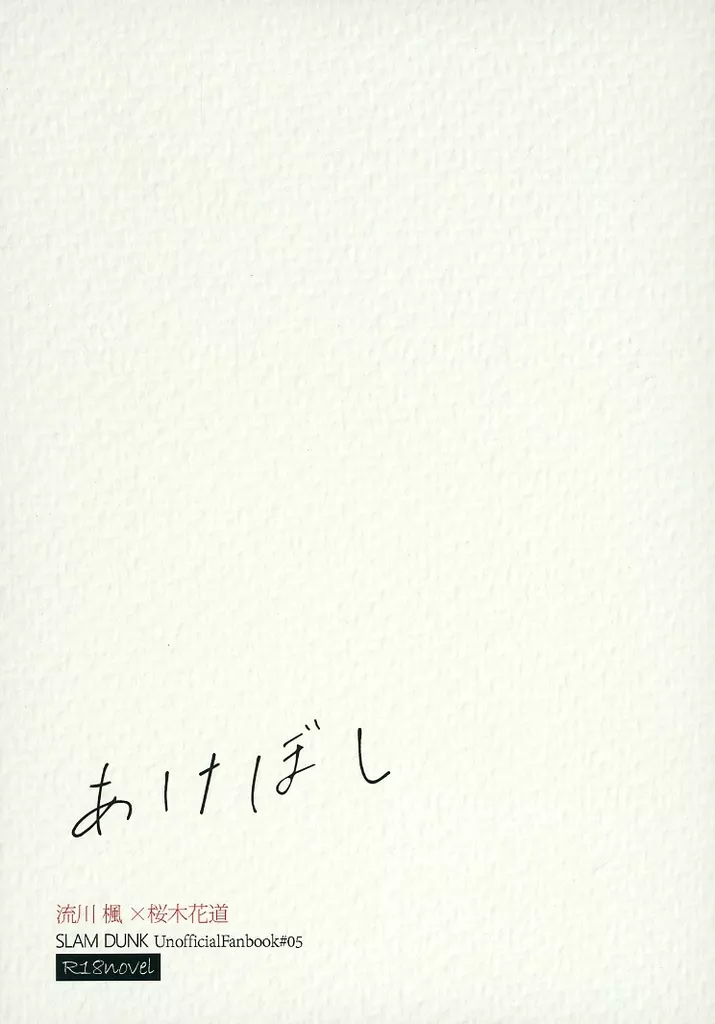 あけぼし
流川 楓 ×桜木花道
SLAM DUNK UnofficialFanbook#05
R18novel